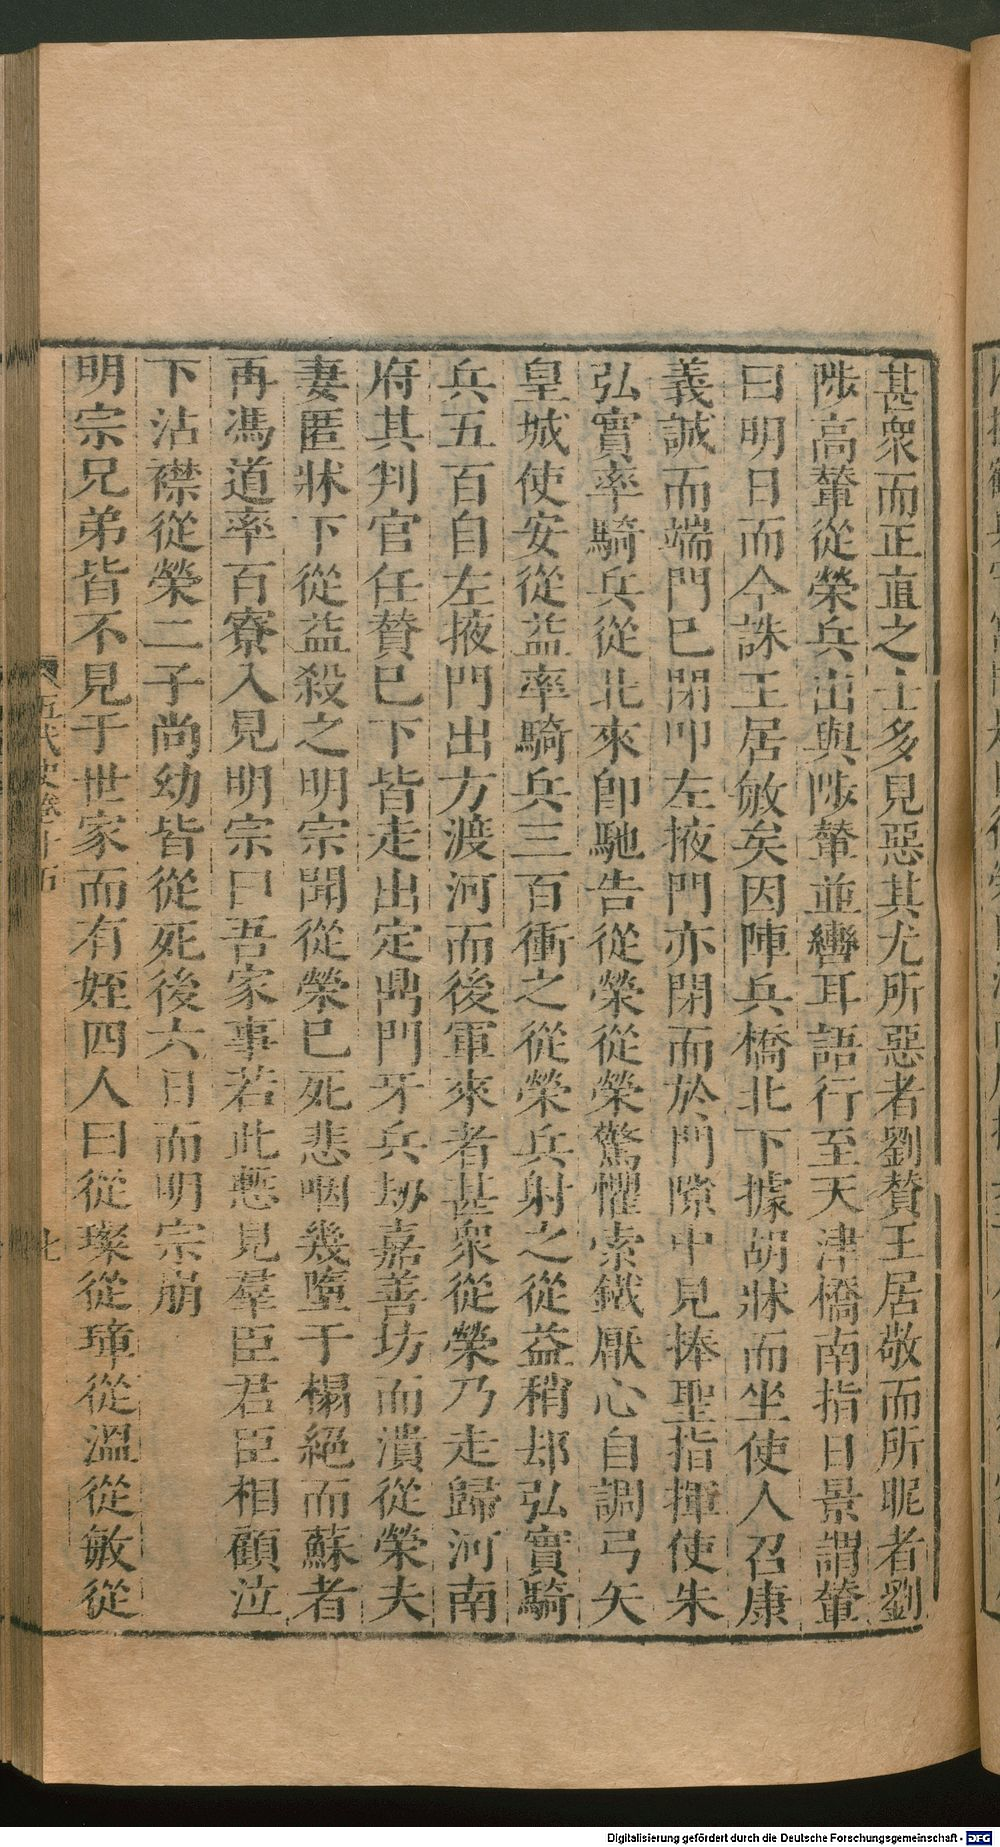 甚衆而正直之士多見惡其尤所惡者劉贊王居敬而所昵者劉
陟高輦從榮兵出與陟輦並轡耳語行至天津橋南指日景謂輦
曰明日而今誅王居敏矣因陣兵橋北下據胡牀而坐使人召康
義誠而端門已閉叩左掖門亦閉而於門隙中見捧聖指揮使朱
弘實率騎兵從北來即馳告從榮從榮驚懼索鐵厭心自調弓矢
皇城使安從益率騎兵三百衝之從榮兵射之從益稍却弘實騎
兵五百自左掖門出方渡河而後軍來者甚衆從榮乃走歸河南
府其判官任贊已下皆走出定鼎門牙兵劫嘉善坊而潰從榮夫
妻匿牀下從益殺之明宗聞從榮已死悲咽幾墮于榻絕而蘇者
再馮道率百寮入見明宗曰吾家事若此慙見羣臣君臣相顧泣
下沾襟從榮二子尚幼皆從死後六日而明宗崩
明宗兄弟皆不見于世家而有姪四人曰從璨從璋從溫從敏從
五代史卷十五
Digitalisierung gefördert durch die Deutsche Forschungsgemeinschaft - DFG